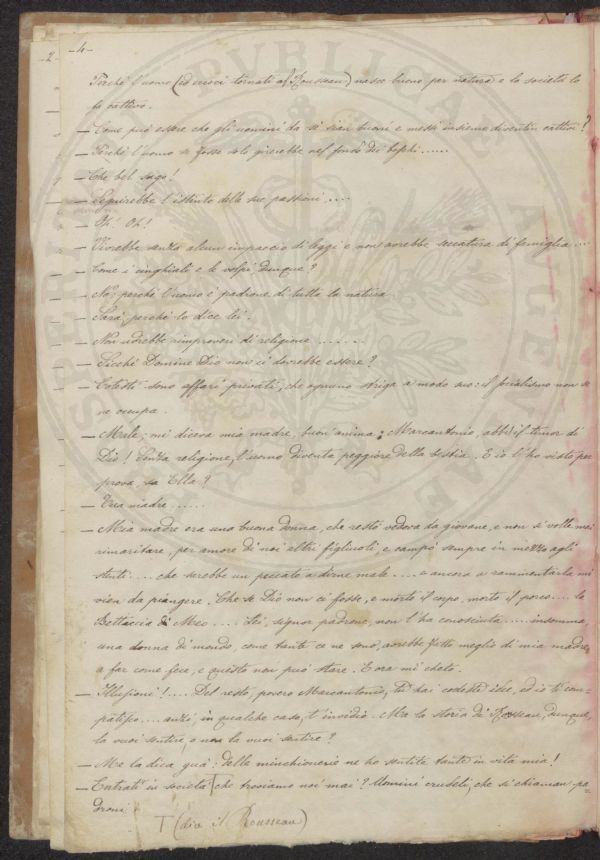 -4-
-2-
Perchè l'uomo (ed eccoci tornati al Rousseau) nasce buono per natura e la società lo
fa cattivo.
— Come può essere che gli uomini da sè sian buoni e messi insieme diventin cattivi?
— Perchè l'uomo se fosse solo girerebbe nel fondo dei boschi......
— Che bel sugo!
— Seguirebbe l'istinto delle sue passioni....
— Oh! Oh!
— Vivrebbe senza alcun impaccio di leggi e non avrebbe seccatura di famiglia...
— Come i cinghiali e le volpi dunque?
— No: perchè l'uomo è padrone di tutta la natura
— Sarà, perchè lo dice lei.
— Non udrebbe rimproveri di religione.......
— Sicchè Domine Dio non ci dovrebbe essere?
— Cotesti sono affari privati, che ognuno striga a modo suo: il socialismo non se
ne occupa.
— Male; mi diceva mia madre, buon'anima: Marcantonio, abbi il timor di
Dio! Senza religione, l'uomo diventa peggiore della bestia. E io l'ho visto per
prova, sa Ella?
— Tua madre......
— Mia madre era una buona donna, che restò vedova da giovane, e non si volle mai
rimaritare, per amore di noi altri figliuoli, e campò sempre in mezzo agli
stenti... che sarebbe un peccato a dirne male.... e ancora a rammentarla mi
vien da piangere. Che se Dio non ci fosse, e morto il corpo, morto il porco.... la
Bettaccia di Meo.... Lei, signor padrone, non l'ha conosciuta.....insomma,
una donna di mondo, come tante ce ne sono, avrebbe fatto meglio di mia madre,
a far come fece, e questo non può stare. E ora mi cheto.
— Illusioni!.... Del resto, povero Marcantonio, tu hai codeste idee, ed io ti com-
patisco.... anzi, in qualche caso, t'invidio. Ma la storia di Rousseau, dunque,
la vuoi sentire, o non la vuoi sentire?
— Me la dica pure: delle minchionerie ne ho sentite tante in vita mia!
— Entrati in società che troviamo noi mai? Uomini crudeli, che si chiaman pa-
droni
T (dice il Rousseau)